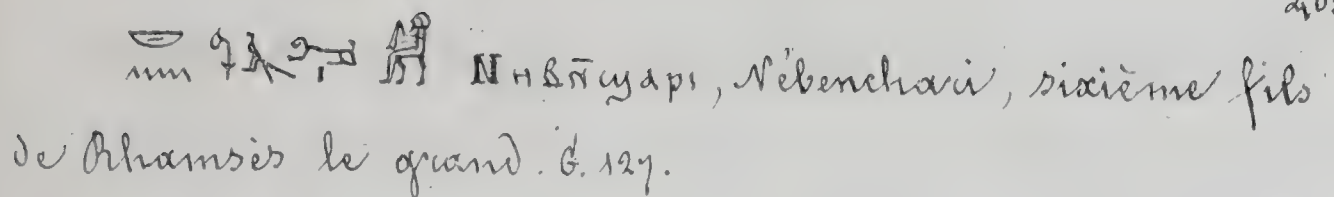 ⲚⲏⲃⲚ̄ϣⲁⲣⲓ, Nébenchari, sixième fils
de Rhamsès le grand. G. 127.